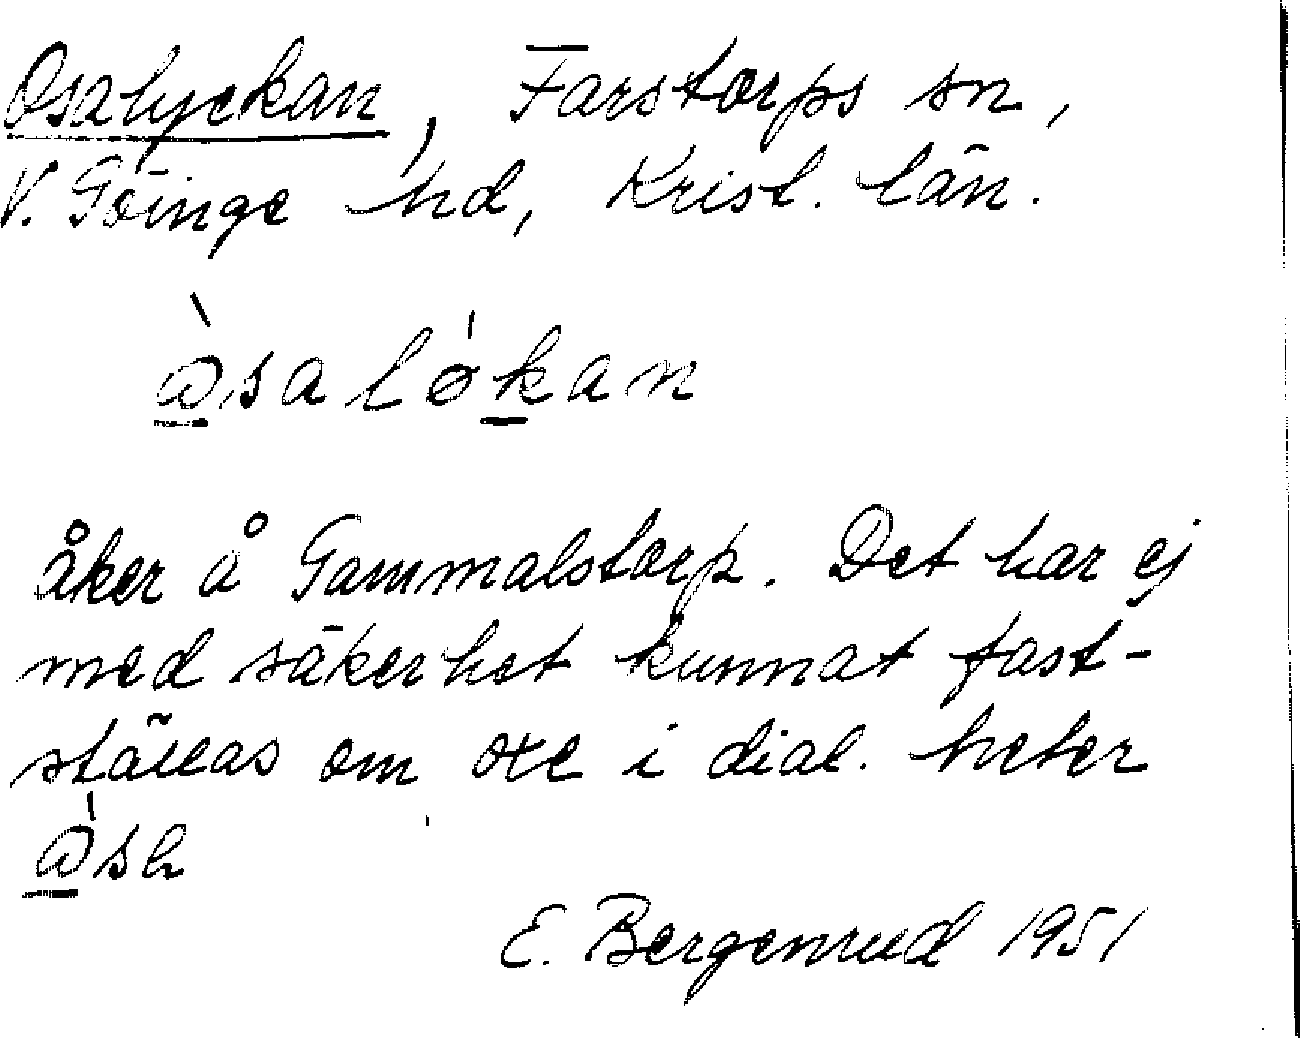 Osalyckan, Farstorps sn,
V. Göinge hd, Krist. län.
åker å Gammalstorp. Det har ej
med säkerhet kunnat fast-
ställas om oxe i dial. heter
E. Bergenrud 1951